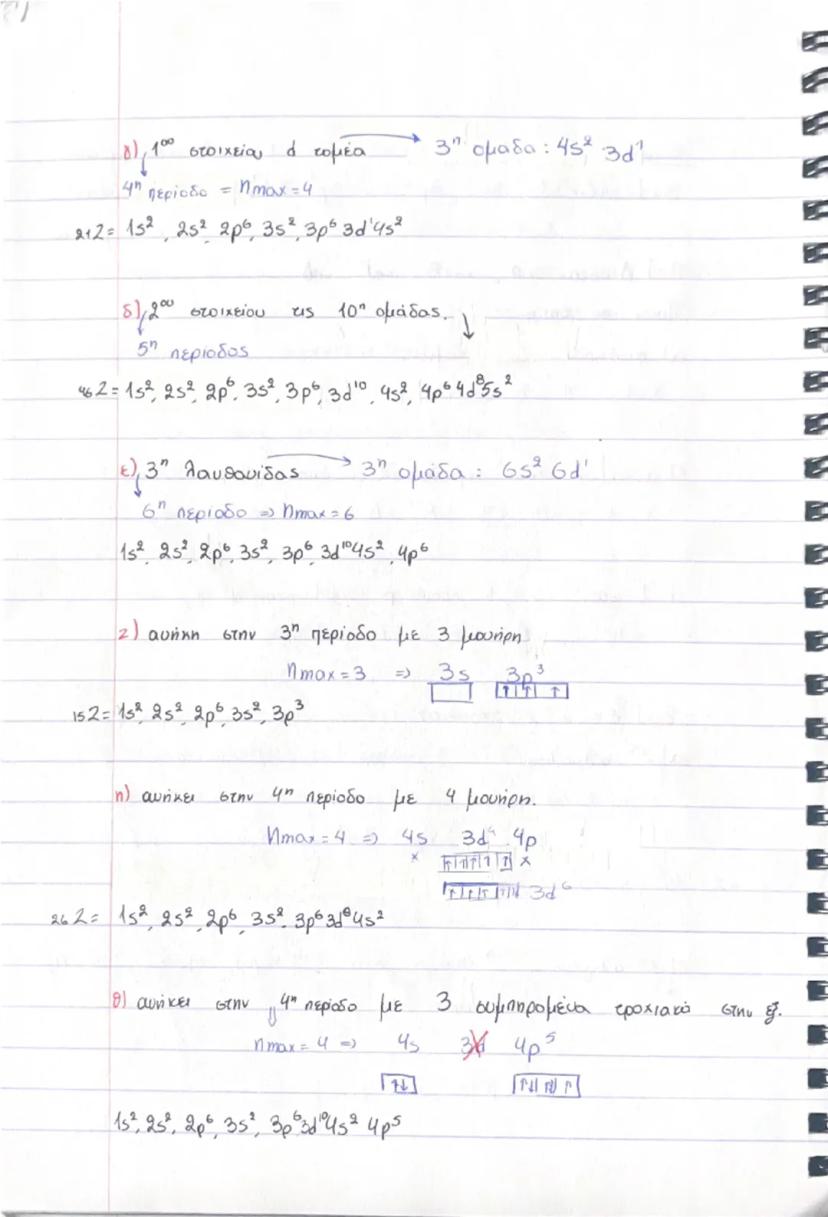 γ) 1ου στοιχείου d τομέα → 3η ομάδα : 4s² 3d¹
4η περίοδο = nmax = 4
₂₁Z = 1s², 2s², 2p⁶, 3s², 3p⁶ 3d¹ 4s²
δ) 2ου στοιχείου τις 10η ομάδας. ↓
5η περίοδος
₄₆Z = 1s², 2s², 2p⁶, 3s², 3p⁶, 3d¹⁰, 4s², 4p⁶ 4d⁸ 5s²
ε) 3η λανθανίδας → 3η ομάδα : 6s² 6d¹
6η περίοδο ⇒ nmax = 6
1s², 2s², 2p⁶, 3s², 3p⁶, 3d¹⁰ 4s², 4p⁶
ζ) ανήκη στην 3η περίοδο με 3 μονήρη
nmax = 3 ⇒ 3s 3p³
↑ ↑ ↑
₁₅Z = 1s², 2s², 2p⁶, 3s², 3p³
η) ανήκει στην 4η περίοδο με 4 μονήρη.
nmax = 4 ⇒ 4s 3d⁴ 4p
x x
3d⁶
₂₆Z = 1s², 2s², 2p⁶, 3s², 3p⁶ 3d⁶ 4s²
θ) ανήκει στην 4η περίοδο με 3 συμπηρομένα τροχιακά στην εξ.
nmax = 4 ⇒ 4s 3d 4p⁵
↑↓ ↑↓ ↑↓ ↑
1s², 2s², 2p⁶, 3s², 3p⁶ 3d¹⁰ 4s² 4p⁵